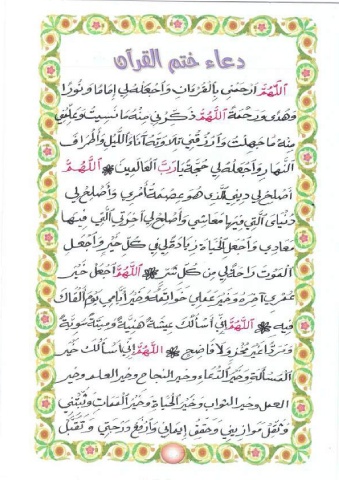 دعاء ختم القرآن
اَللَّهُمَّ ارْحَمْنِي بِالْقُرْءَانِ وَاجْعَلْهُ لِي إِمَامًا وَنُورًا
وَهُدًى وَرَحْمَةً اَللَّهُمَّ ذَكِّرْنِي مِنْهُ مَا نَسِيتُ وَعَلِّمْنِي
مِنْهُ مَا جَهِلْتُ وَارْزُقْنِي تِلَاوَتَهُ آنَاءَ اللَّيْلِ وَأَطْرَافَ
النَّهَارِ وَاجْعَلْهُ لِي حُجَّةً يَا رَبَّ الْعَالَمِينَ اَللَّهُمَّ
أَصْلِحْ لِي دِينِي الَّذِي هُوَ عِصْمَةُ أَمْرِي وَأَصْلِحْ لِي
دُنْيَايَ الَّتِي فِيهَا مَعَاشِي وَأَصْلِحْ لِي آخِرَتِي الَّتِي فِيهَا
مَعَادِي وَاجْعَلِ الْحَيَاةَ زِيَادَةً لِي فِي كُلِّ خَيْرٍ وَاجْعَلِ
الْمَوْتَ رَاحَةً لِي مِنْ كُلِّ شَرٍّ اَللَّهُمَّ اجْعَلْ خَيْرَ
عُمْرِي آخِرَهُ وَخَيْرَ عَمَلِي خَوَاتِمَهُ وَخَيْرَ أَيَّامِي يَوْمَ أَلْقَاكَ
فِيهِ اَللَّهُمَّ إِنِّي أَسْأَلُكَ عِيشَةً هَنِيَّةً وَمِيتَةً سَوِيَّةً
وَمَرَدًّا غَيْرَ مُخْزٍ وَلَا فَاضِحٍ اَللَّهُمَّ إِنِّي أَسْأَلُكَ خَيْرَ
الْمَسْأَلَةِ وَخَيْرَ الدُّعَاءِ وَخَيْرَ النَّجَاحِ وَخَيْرَ الْعِلْمِ وَخَيْرَ
الْعَمَلِ وَخَيْرَ الثَّوَابِ وَخَيْرَ الْحَيَاةِ وَخَيْرَ الْمَمَاتِ وَثَبِّتْنِي
وَثَقِّلْ مَوَازِينِي وَحَقِّقْ إِيمَانِي وَارْفَعْ دَرَجَتِي وَتَقَبَّلْ